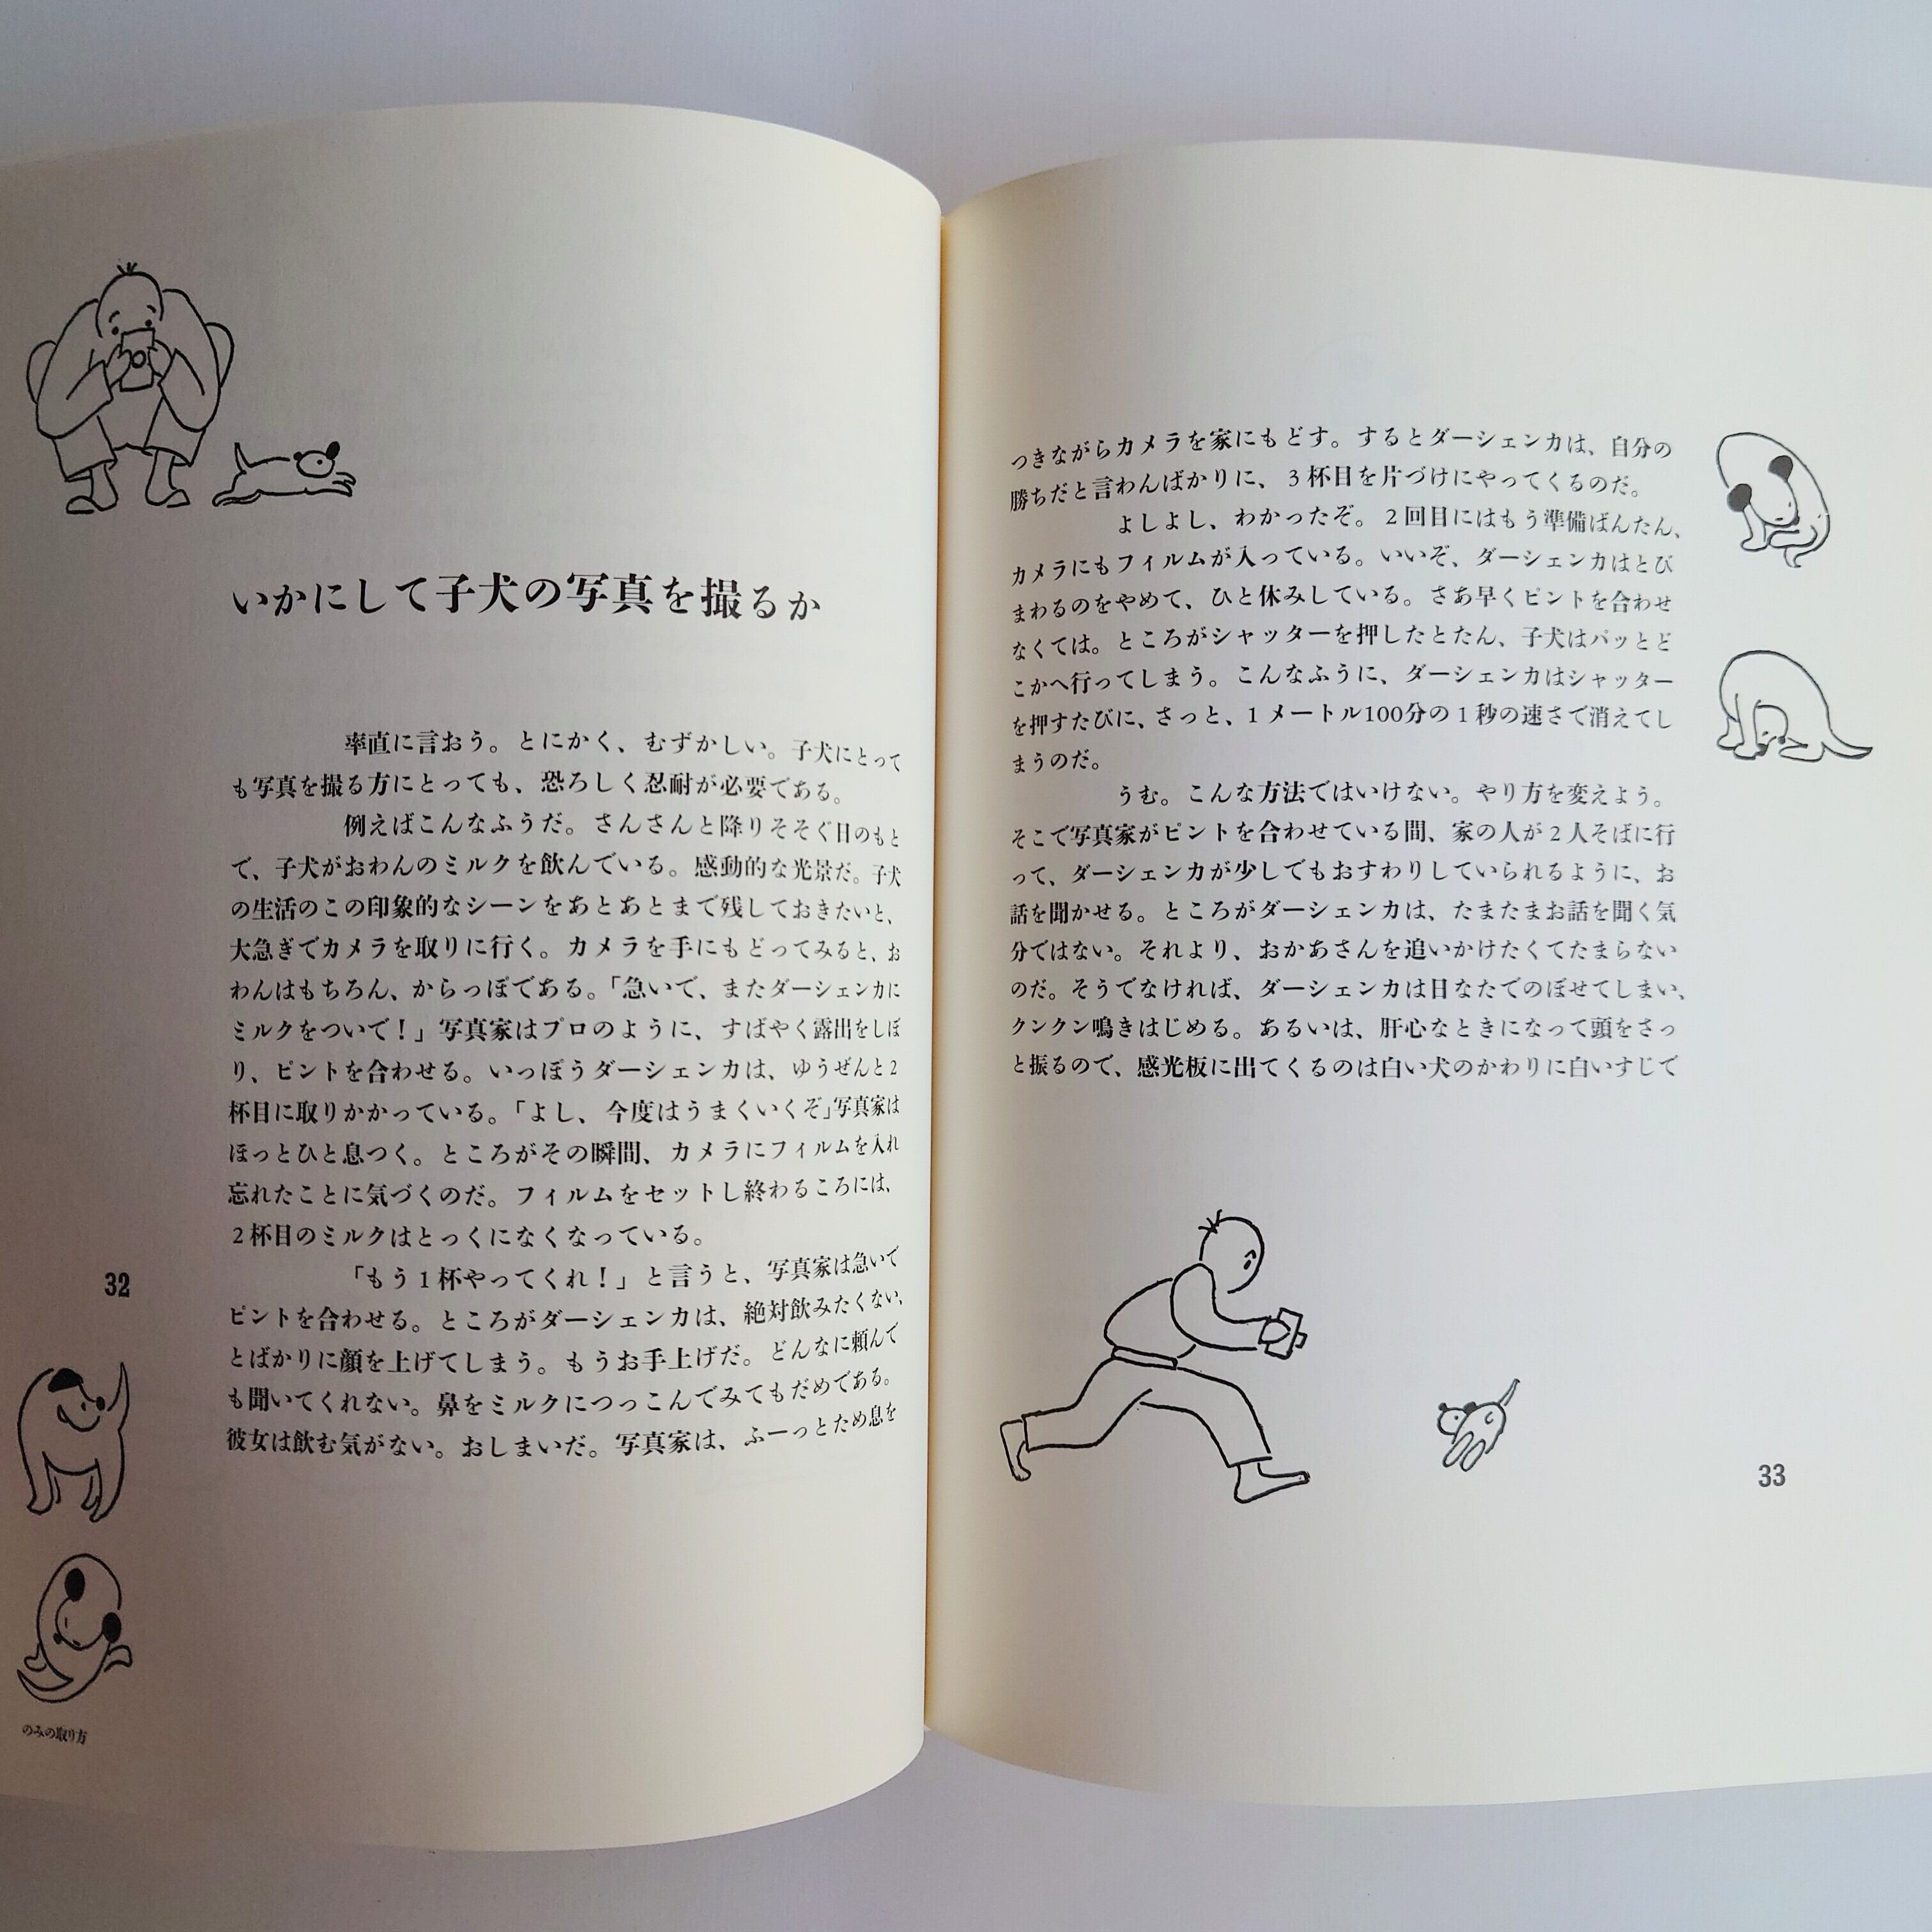 いかにして子犬の写真を撮るか
率直に言おう。とにかく、むずかしい。子犬にとって
も写真を撮る方にとっても、恐ろしく忍耐が必要である。
例えばこんなふうだ。さんさんと降りそそぐ日のもと
で、子犬がおわんのミルクを飲んでいる。感動的な光景だ。子犬
の生活のこの印象的なシーンをあとあとまで残しておきたいと、
大急ぎでカメラを取りに行く。カメラを手にもどってみると、お
わんはもちろん、からっぽである。「急いで、またダーシェンカに
ミルクをついで！」写真家はプロのように、すばやく露出をしぼ
り、ピントを合わせる。いっぽうダーシェンカは、ゆうぜんと2
杯目に取りかかっている。「よし、今度はうまくいくぞ」写真家は
ほっとひと息つく。ところがその瞬間、カメラにフィルムを入れ
忘れたことに気づくのだ。フィルムをセットし終わるころには、
2杯目のミルクはとっくになくなっている。
「もう1杯やってくれ！」と言うと、写真家は急いで
ピントを合わせる。ところがダーシェンカは、絶対飲みたくない、
とばかりに顔を上げてしまう。もうお手上げだ。どんなに頼んで
も聞いてくれない。鼻をミルクにつっこんでみてもだめである。
彼女は飲む気がない。おしまいだ。写真家は、ふーっとため息を
32
のみの取り方
つきながらカメラを家にもどす。するとダーシェンカは、自分の
勝ちだと言わんばかりに、3杯目を片づけにやってくるのだ。
よしよし、わかったぞ。2回目にはもう準備ばんたん、
カメラにもフィルムが入っている。いいぞ、ダーシェンカはとび
まわるのをやめて、ひと休みしている。さあ早くピントを合わせ
なくては。ところがシャッターを押したとたん、子犬はパッとど
こかへ行ってしまう。こんなふうに、ダーシェンカはシャッター
を押すたびに、さっと、1メートル100分の1秒の速さで消えてし
まうのだ。
うむ。こんな方法ではいけない。やり方を変えよう。
そこで写真家がピントを合わせている間、家の人が2人そばに行
って、ダーシェンカが少しでもおすわりしていられるように、お
話を聞かせる。ところがダーシェンカは、たまたまお話を聞く気
分ではない。それより、おかあさんを追いかけたくてたまらない
のだ。そうでなければ、ダーシェンカは日なたでのぼせてしまい、
クンクン鳴きはじめる。あるいは、肝心なときになって頭をさっ
と振るので、感光板に出てくるのは白い犬のかわりに白いすじで
33